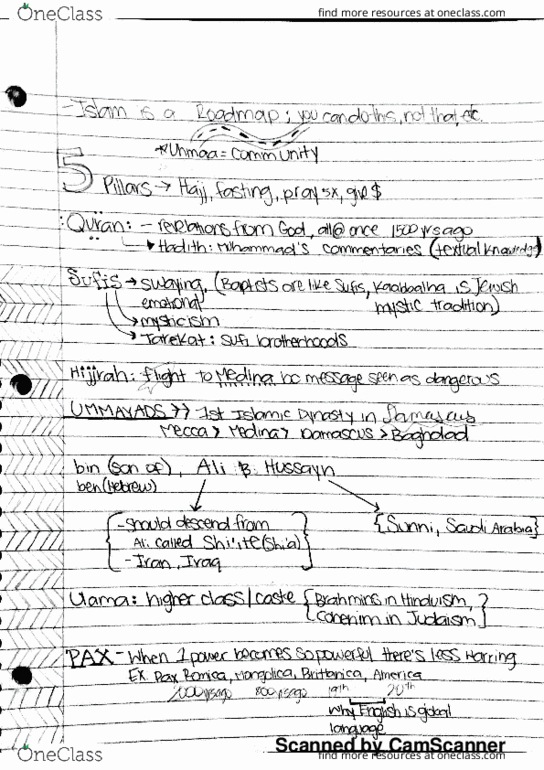 OneClass
find more resources at oneclass.com
- Islam is a Roadmap; you can do this, not that, etc.
*Uhmaa = Community
5 Pillars → Hajj, fasting, pray 5x, give $
Quran: - revelations from God, all @ once 1500 yrs ago
Hadith: Muhammad's commentaries (textual knowledge)
Sufis → swaying, (Baptists are like Sufis, Kaabbalha is Jewish
emotional mystic tradition)
→ mysticism
→ Tarekat: Sufi brotherhoods
Hijjrah: flight to Medina bc message seen as dangerous
UMMAYADS >> 1st Islamic Dynasty in Damascus
Mecca > Medina > Damascus > Baghdad
bin (son of), Ali B. Hussayn
ben (Hebrew)
- should descend from {Sunni, Saudi Arabia}
Ali. called Shi'ite (Shi'a)
- Iran, Iraq
Ulama: higher class/caste {Brahmins in Hinduism,
Cohenim in Judaism}
PAX - When 1 power becomes so powerful there's less warring
Ex. Pax Romica, Mongolica, Brittanica, America
2000 yrs ago 800 yrs ago 19th 20th
why English is global
language
Scanned by CamScanner
OneClass
find more resources at oneclass.com